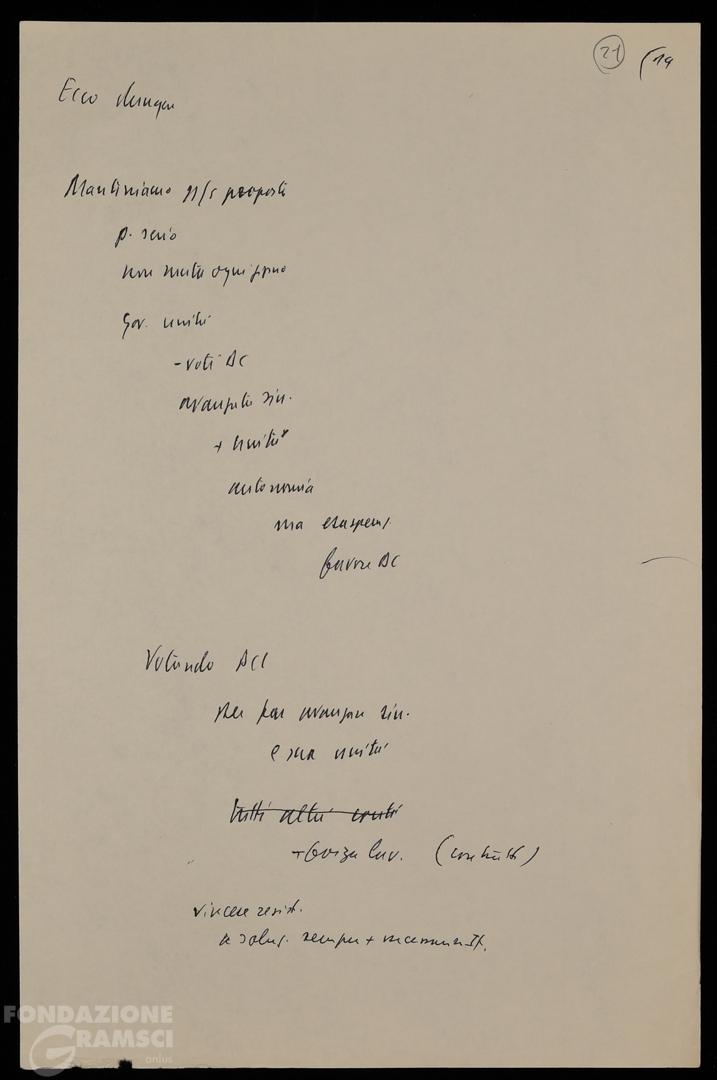 21 (19
Ecco dunque
Manteniamo ns/s proposte
p. serio
non muta ogni giorno
Gov. unità
- voti DC
avanzata sin.
+ unità
autonomia
ma esasperaz.
favore DC
Votando PCI
per far avanzare sin.
e sua unità
tutti altri conti
+ forza lav. (contratti)
vincere resist.
a soluz. sempre +
FONDAZIONE
GRAMSCI
onlus